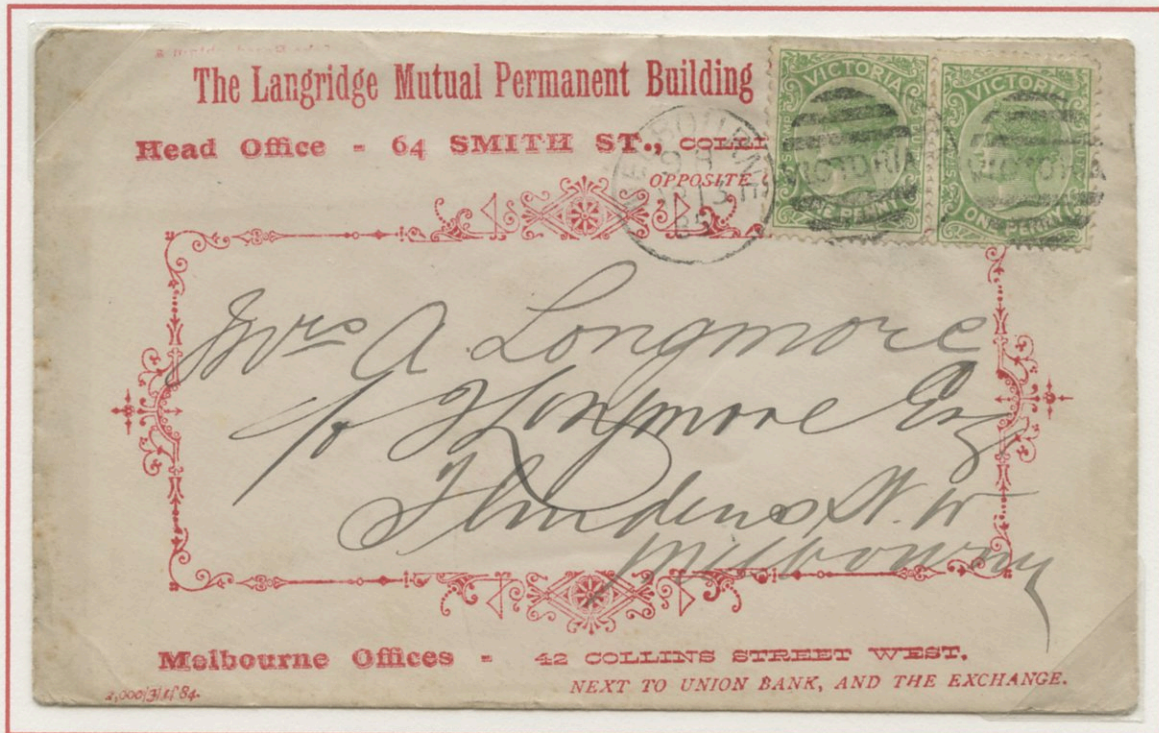 The Langridge Mutual Permanent Building
Head Office - 64 SMITH ST., COLLI
OPPOSITE
MELBOURN
9 H
13
85
VICTORIA
STAMP DUTY
VICTORIA
ONE PENNY
VICTORIA
STAMP DUTY
VICTORIA
ONE PENNY
Mrs A. Longmore
Longmore Esq
Flinders St. W
Melbourne
Melbourne Offices - 42 COLLINS STREET WEST.
NEXT TO UNION BANK, AND THE EXCHANGE.
2,000/3/1/'84.